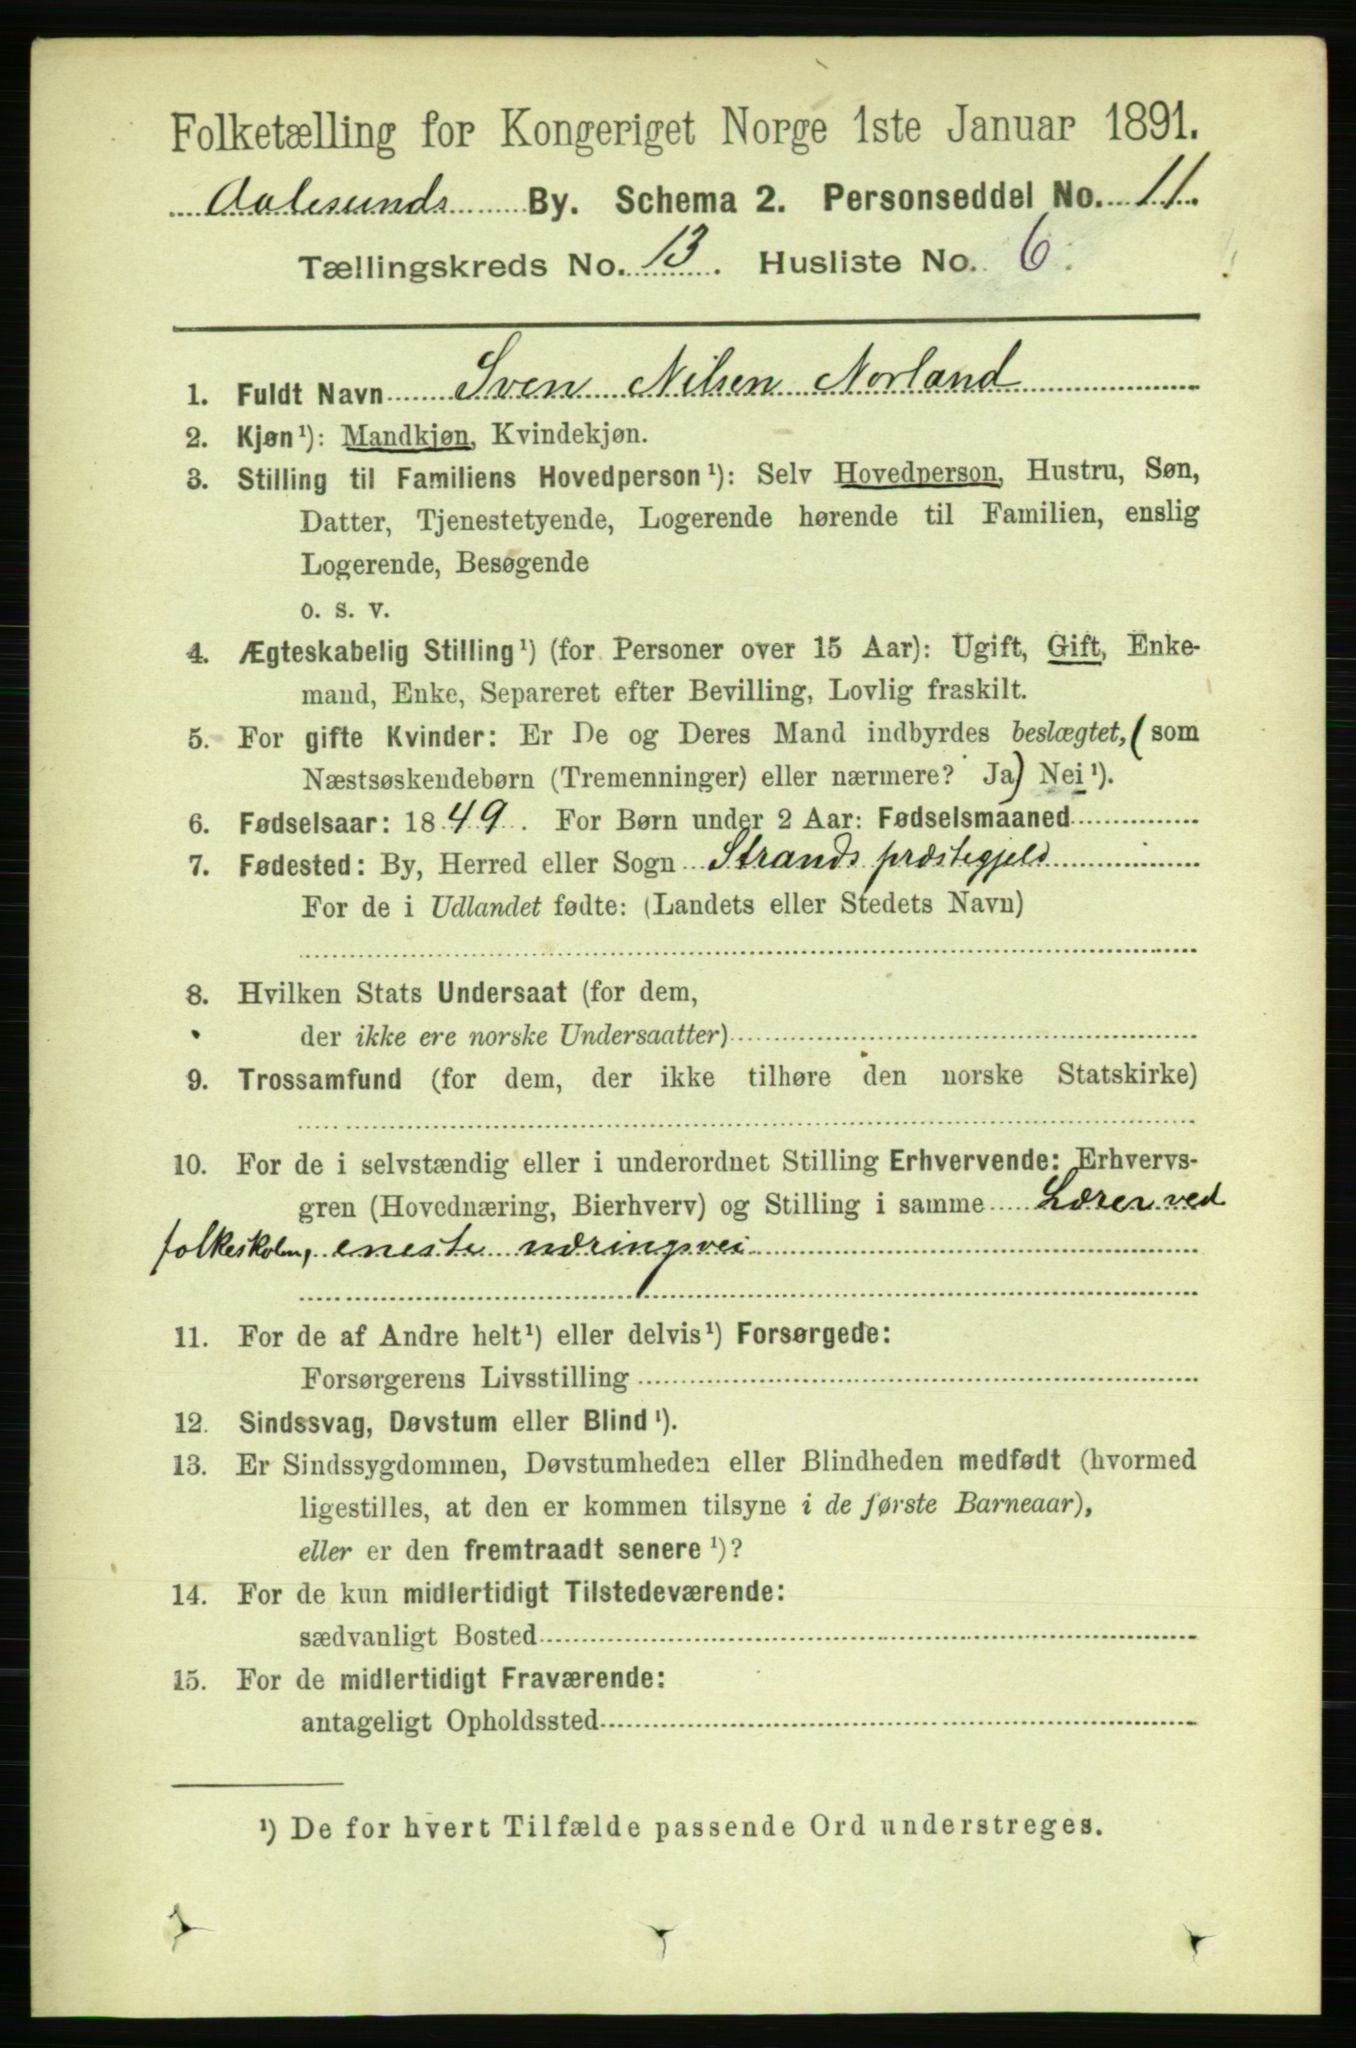 Folketælling for Kongeriget Norge 1ste Januar 1891.
Aalesunds By. Schema 2. Personseddel No. 11.
Tællingskreds No. 13. Husliste No. 6.
1. Fuldt Navn Sven Nilsen Norland
2. Kjøn¹): Mandkjøn, Kvindekjøn.
3. Stilling til Familiens Hovedperson¹): Selv Hovedperson, Hustru, Søn,
Datter, Tjenestetyende, Logerende hørende til Familien, enslig
Logerende, Besøgende
o. s. v.
4. Ægteskabelig Stilling¹) (for Personer over 15 Aar): Ugift, Gift, Enke-
mand, Enke, Separeret efter Bevilling, Lovlig fraskilt.
5. For gifte Kvinder: Er De og Deres Mand indbyrdes beslægtet, (som
Næstsøskendebørn (Tremenninger) eller nærmere? Ja) Nei¹).
6. Fødselsaar: 1849. For Børn under 2 Aar: Fødselsmaaned
7. Fødested: By, Herred eller Sogn Strands præstegjeld
For de i Udlandet fødte: (Landets eller Stedets Navn)
8. Hvilken Stats Undersaat (for dem,
der ikke ere norske Undersaatter)
9. Trossamfund (for dem, der ikke tilhøre den norske Statskirke)
10. For de i selvstændig eller i underordnet Stilling Erhvervende: Erhvervs-
gren (Hovednæring, Bierhverv) og Stilling i samme Lærer ved
folkeskolen, eneste næringsvei
11. For de af Andre helt¹) eller delvis¹) Forsørgede:
Forsørgerens Livsstilling
12. Sindssvag, Døvstum eller Blind¹).
13. Er Sindssygdommen, Døvstumheden eller Blindheden medfødt (hvormed
ligestilles, at den er kommen tilsyne i de første Barneaar),
eller er den fremtraadt senere¹)?
14. For de kun midlertidigt Tilstedeværende:
sædvanligt Bosted
15. For de midlertidigt Fraværende:
antageligt Opholdssted
¹) De for hvert Tilfælde passende Ord understreges.